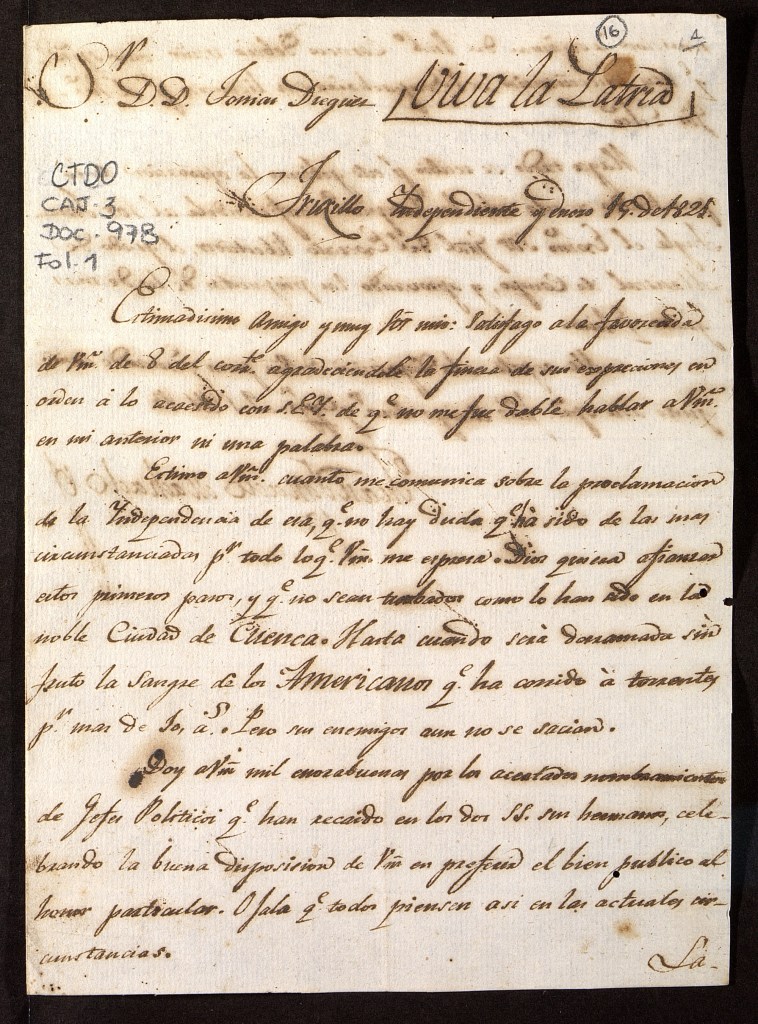 16
Sr. D. D. Tomas Dieguez
Viva la Patria
CTDO
CAJ. 3
DOC. 978
Fol. 1
Truxillo Independiente y enero 19. de 1821.
Estimadisimo Amigo y muy Sor. mio: Satisfago a la favorecida
de Vm. de 8 del corte. agradeciendole la fineza de sus expreciones en
orden á lo acaecido con S.E.Y. de qe. no me fue dable hablar a Vm.
en mi anterior ni una palabra.
Estimo a Vm. cuanto me comunica sobre la proclamacion
de la Independencia de esa, qe. no hay duda qe. há sido de las mas
circunstanciadas pr. todo lo qe. Vm. me expresa. Dios quiera afianzar
estos primeros pasos, y qe. no sean turbados como lo han sido en la
noble Ciudad de Cuenca. Hasta cuando será derramada sin
fruto la sangre de los Americanos qe. ha corrido à torrentes
pr. mas de 10, as. Pero sus enemigos aun no se sacian.
Doy a Vm. mil enorabuenas por los acertados nombramientos
de Jefes Politicos qe. han recaido en los dos SS. sus hermans, cele-
brando la buena disposision de Vm. en preferir el bien publico al
honor particular. Ojala qe. todos piensen asi en las actuales cir-
cunstancias.
La-